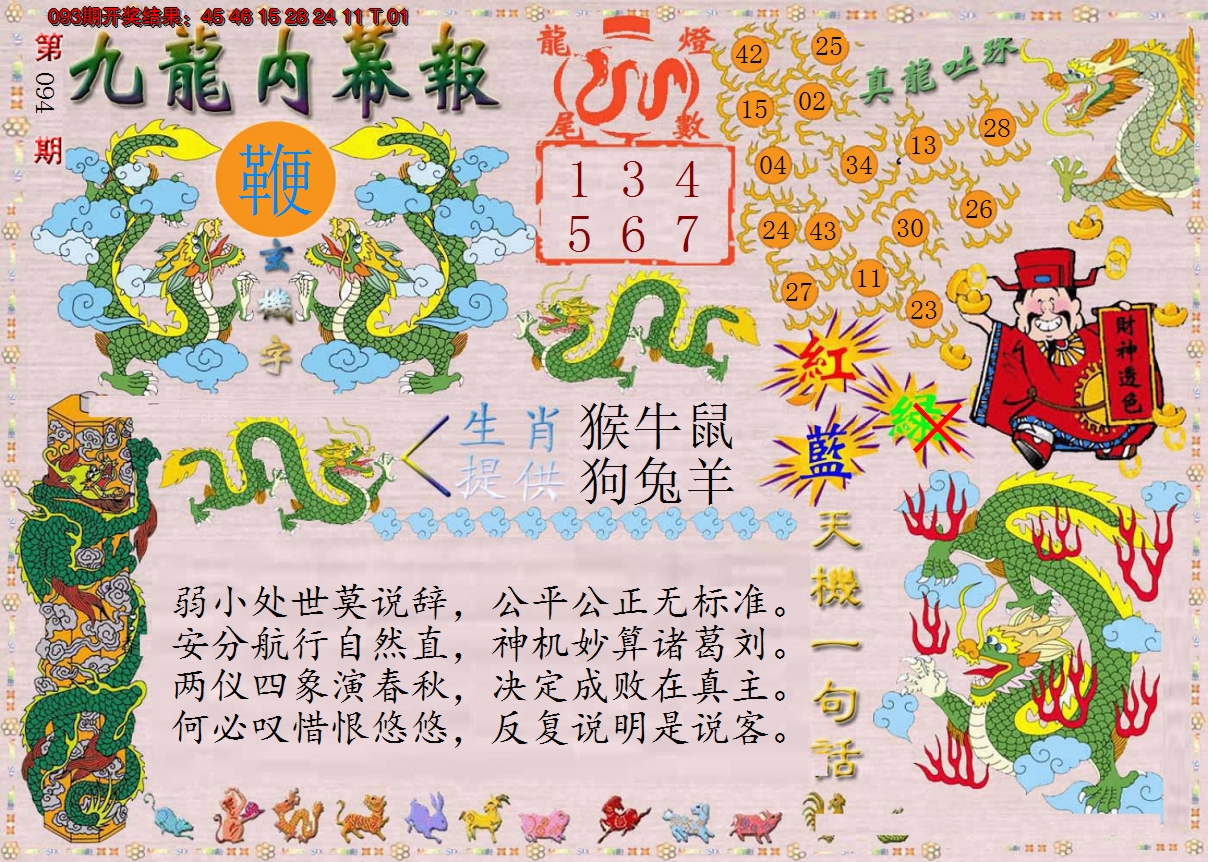 093期开奖结果：45 46 15 28 24 11 T 01
第094期
九龍内幕報
鞭
玄機字
龍燈尾數
1 3 4
5 6 7
真龍吐珠
42 25
15 02
13 28
04 34
26
24 43 30
27 11
23
財神透色
紅
綠
藍
生肖 猴牛鼠
提供 狗兔羊
天機一句话
弱小处世莫说辞，公平公正无标准。
安分航行自然直，神机妙算诸葛刘。
两仪四象演春秋，决定成败在真主。
何必叹惜恨悠悠，反复说明是说客。